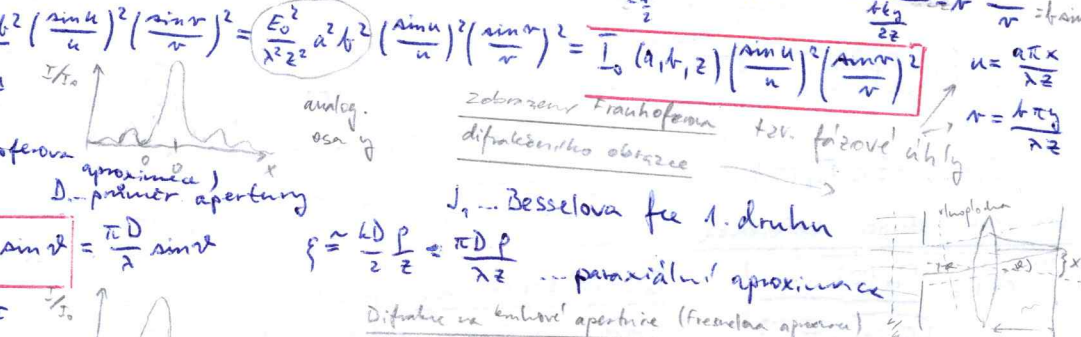 b² (sin u / u)² (sin v / v)² = E₀² / λ²z² a²b² (sin u / u)² (sin v / v)² = I₀ (a, b, z) (sin u / u)² (sin v / v)²
u = aπx / λz
v = bπy / λz
I/I₀
analog.
osa y
x
zobrazení Fraunhoferova
difrakčního obrazce
tzv. fázové úhly
aproximace)
D... průměr apertury
J₁ ... Besselova fce 1. druhu
sin ϑ = πD / λ sin ϑ
ξ ≅ kD / 2 ρ / z = πDρ / λz ... paraxiální aproximace
vlnoplocha
I/I₀
Difrakce na kruhové apertuře (Fresnelova aproximace)